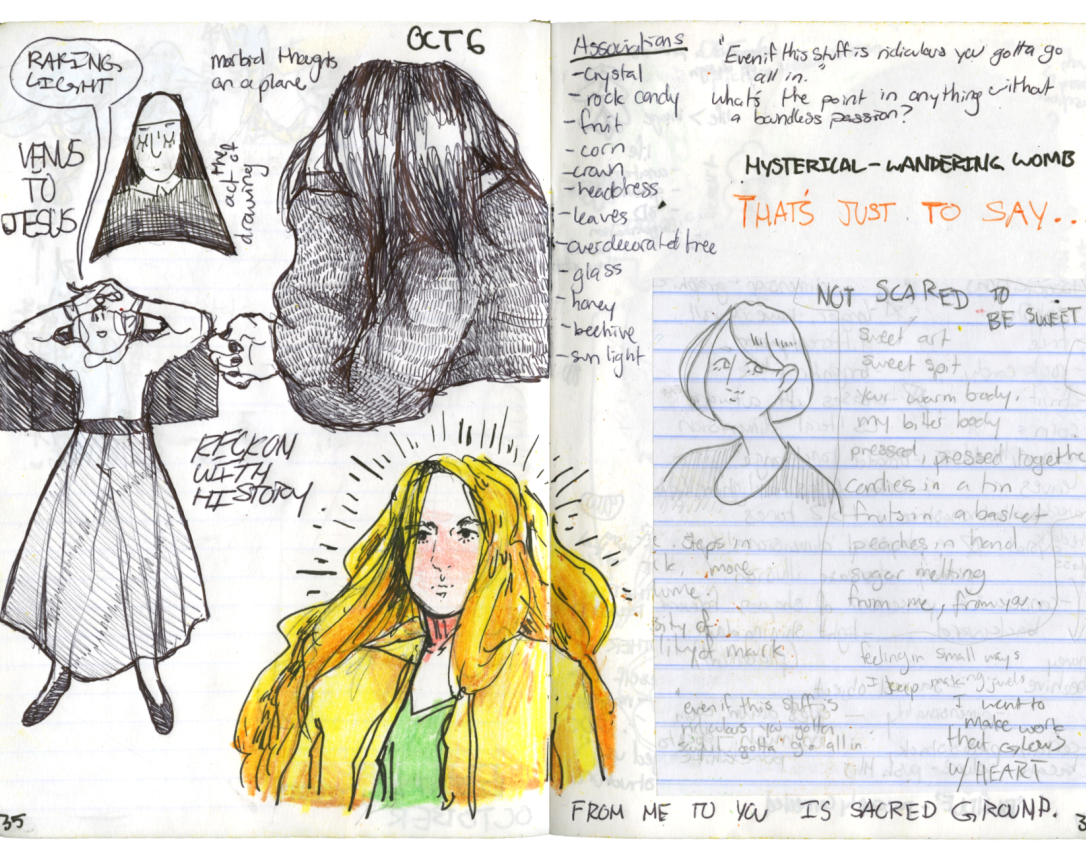 OCT 6
RAKING
LIGHT
morbid thoughts
on a plane
VENUS
TO
JESUS
the
act of
drawing
RECKON
WITH
HISTORY
35
Associations
-crystal
-rock candy
-fruit
-corn
-crown
-headdress
-leaves
-overdecorated tree
-glass
-honey
-beehive
-sun light
"Even if this stuff is ridiculous you gotta go
all in."
what's the point in anything without
a boundless passion?
HYSTERICAL - WANDERING WOMB
THAT'S JUST TO SAY..
NOT SCARED TO
BE SWEET
sweet art
sweet spit
your warm body,
my bitter body
pressed, pressed together
candies in a tin
fruits in a basket
peaches in hand
sugar melting
from me, from you.
steps in
more
ume.
sity of
lity of mark.
feeling in small ways
I keep making
"even if this stuff is
ridiculous you gotta
gotta go all in
I want to
make work
that glows
w/ HEART
FROM ME TO YOU IS SACRED GROUND.
3